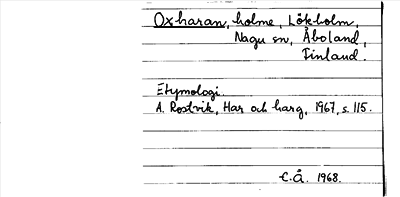 Oxharan, holme, Lökholm,
Nagu sn, Åboland,
Finland.
Etymologi.
A. Rostvik, Har och harg, 1967, s. 115.
C.Å. 1968.